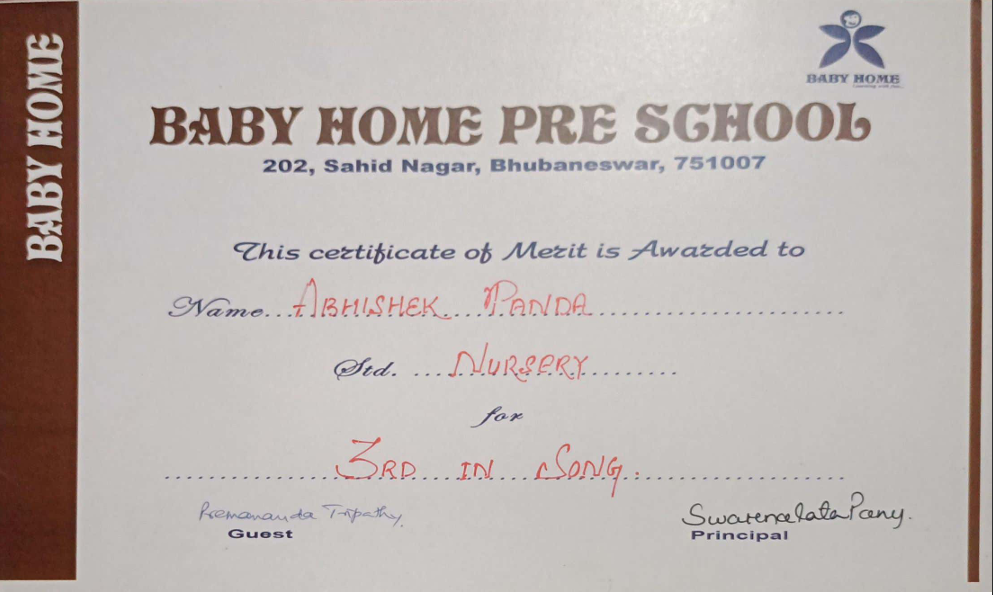 BABY HOME
BABY HOME
BABY HOME PRE SCHOOL
202, Sahid Nagar, Bhubaneswar, 751007
This certificate of Merit is Awarded to
Name...ABHISHEK....PANDA..........................
Std. ....NURSERY.........
for
....................3RD...IN...SONG:......................
Premananda Tripathy
Guest
Swarnalata Pany.
Principal